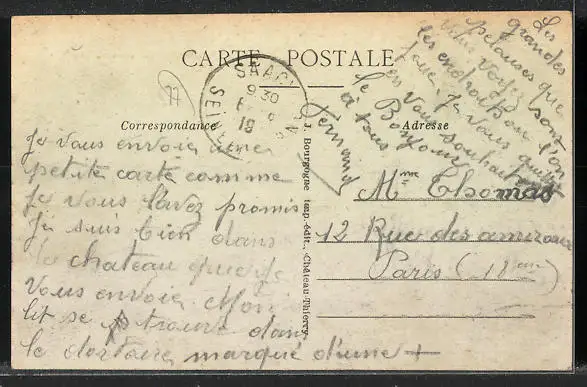 CARTE POSTALE
Correspondance
Adresse
Je vous envoie une
petite carte comme
Je vous l'avez promis
Je suis bien dans
le chateau que je
vous envoie. Mon
lit se trouve dans
le dortoire marqué d'une +
Les
grandes
pelouses que
vous voyez sont
les endroits ou l'on
joue. Je vous quitte
en vous souhaitant
le Bonjour
à tous
Fernand
Mme Thomas
12 Rue des amiraux
Paris (18em)
J. Bourgogne imp. édit., Château-Thierry
SAACY
9 30
19
SEI
77